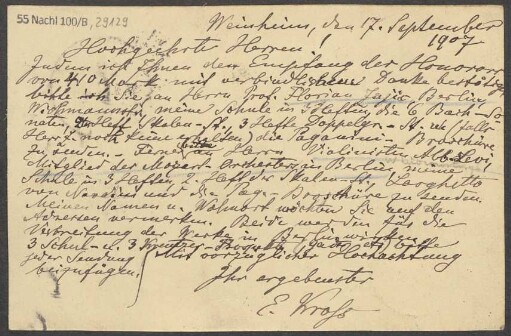 55 Nachl 100/B, 29129
Weinheim, den 17. September
1907
Hochgeehrte Herren!
Indem ich Ihnen den Empfang der Honorare
von 410 Mark mit verbindlichem Danke bestätige,
bitte ich Sie an Herrn Prof. Florian Zajic, Berlin
meine Schule in Heften, die 6 Bach-So-
naten, Skalen-St. 3 Hefte Doppelgr.-St. u. (falls
Herr noch keine erhalten) die Paganini-Broschüre
zu senden. Ferner bitte Herrn Violinisten Levi
Mitglied der Mozart-Orchesters in Berlin meine
Schule in Heften, Heft der Skalen-St., Larghetto
von Nardini und die Pag.-Broschüre zu senden.
Meinen Namen u. Wohnort möchten Sie auf den
Adressen vermerken. Beide werden für die
Verbreitung der Werke in Berlin wirken.
3 Schul- u. 3 Kreutzer-Prospekte bitte
jeder Sendung
beizufügen.
Mit vorzüglicher Hochachtung
Ihr ergebenster
E. Kross